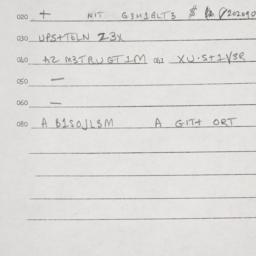 020 + NIT G3H1BLT3 $
030 UPS+TELN Z3X
040 AZ M3TRUGT1M 041 XU·S+1V3R
050 —
060 —
080 A B1SOJLSM A GIT+ ORT